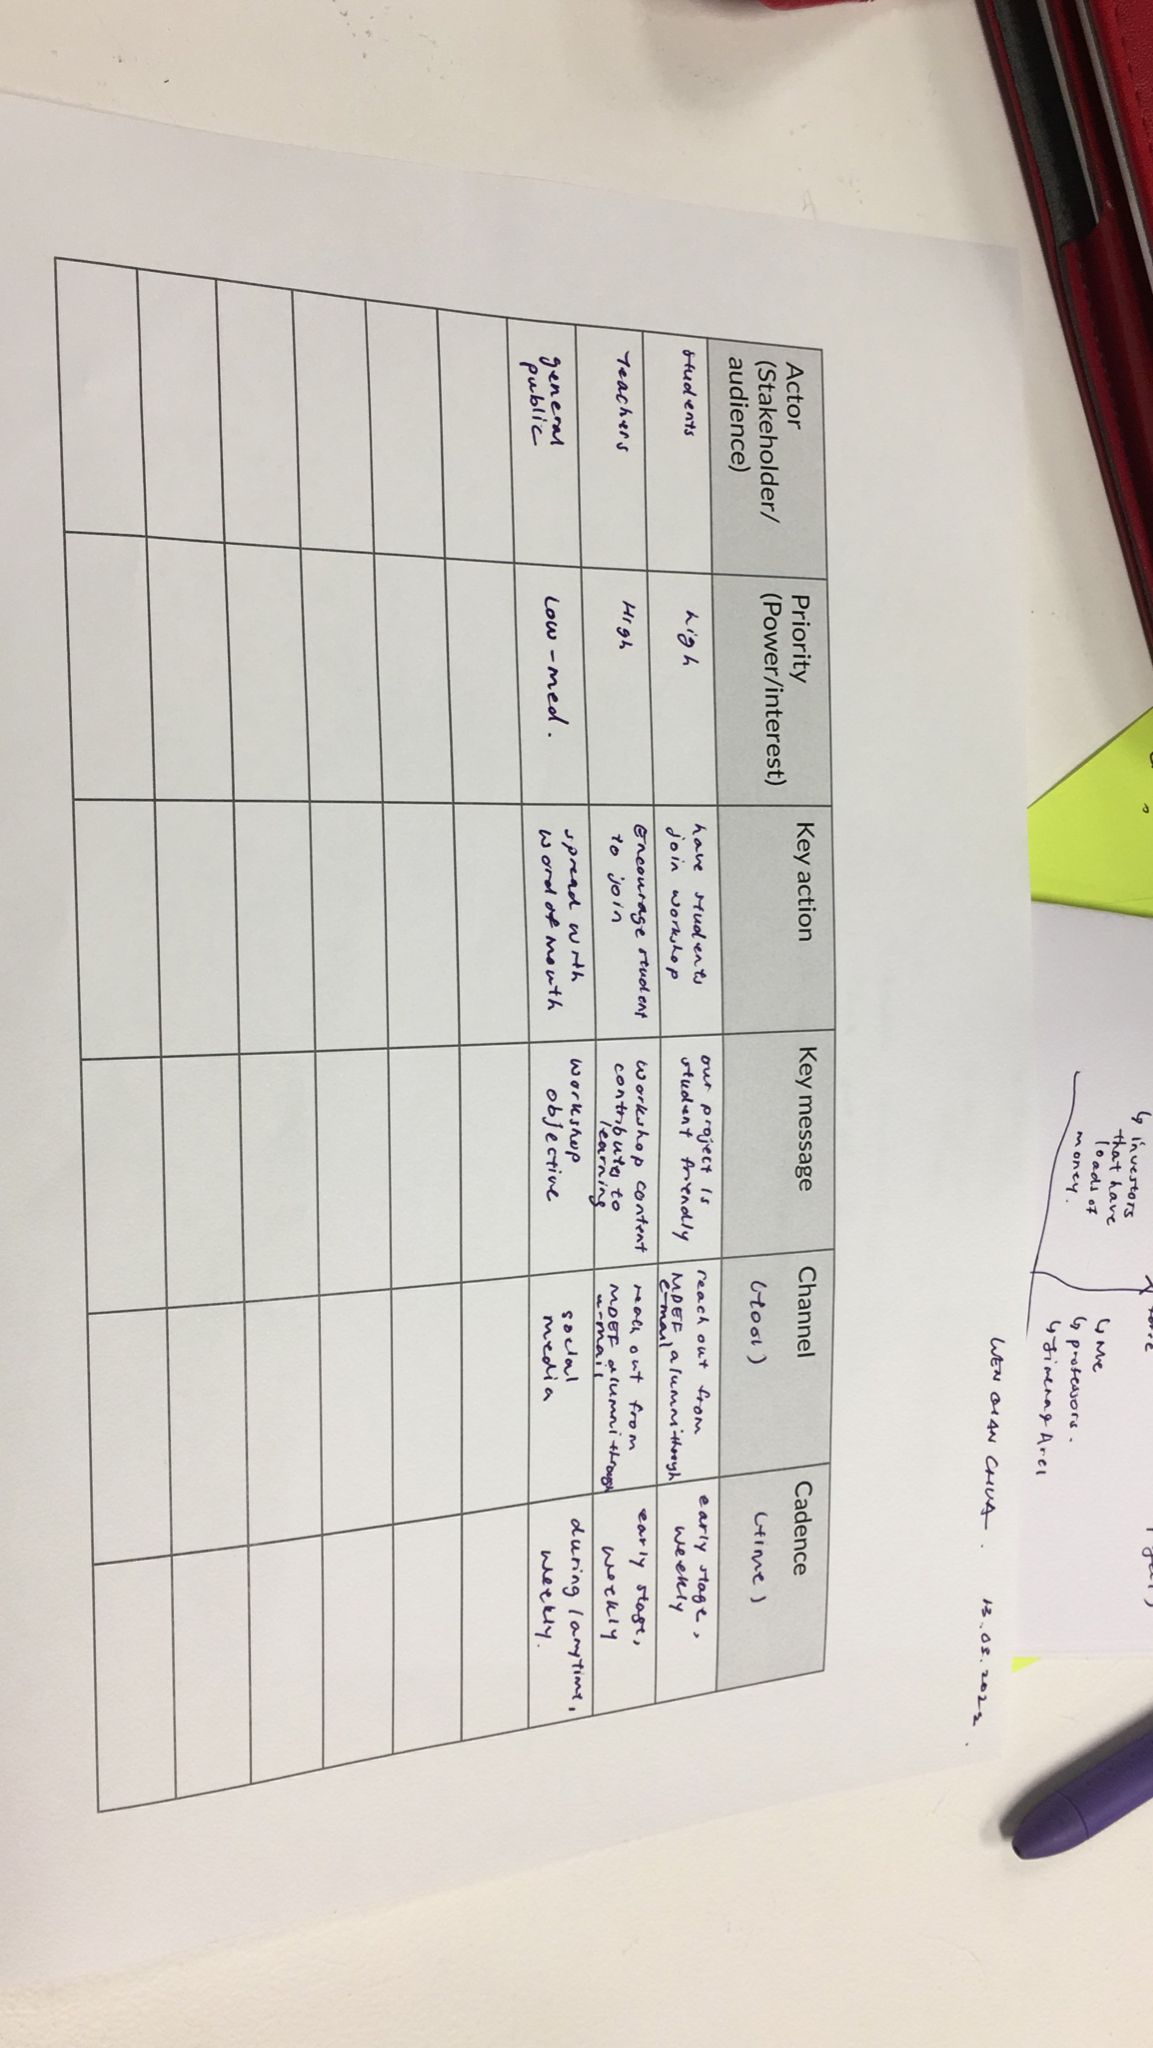 ↳ investors
that have
loads of
money.
↳ Me
↳ professors.
WEN QIAN CHUA. 13.03.2022.
Actor
(Stakeholder/
audience)
Priority
(Power/interest)
Key action
Key message
Channel
(tool)
Cadence
(time)
students
high
have students
join workshop
our project is
student friendly
reach out from
MDEF alumni through
e-mail
early stage,
weekly
Teachers
High
Encourage student
to join
Workshop content
contributes to
learning
reach out from
MDEF alumni through
e-mail
early stage,
weekly
general
public
Low-med.
spread with
word of mouth
workshop
objective
social
media
during/anytime,
weekly.